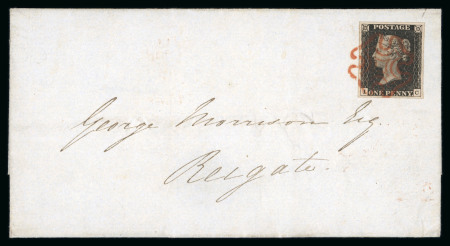 POSTAGE
C
ONE PENNY
George Morrison Esq.
Reigate.